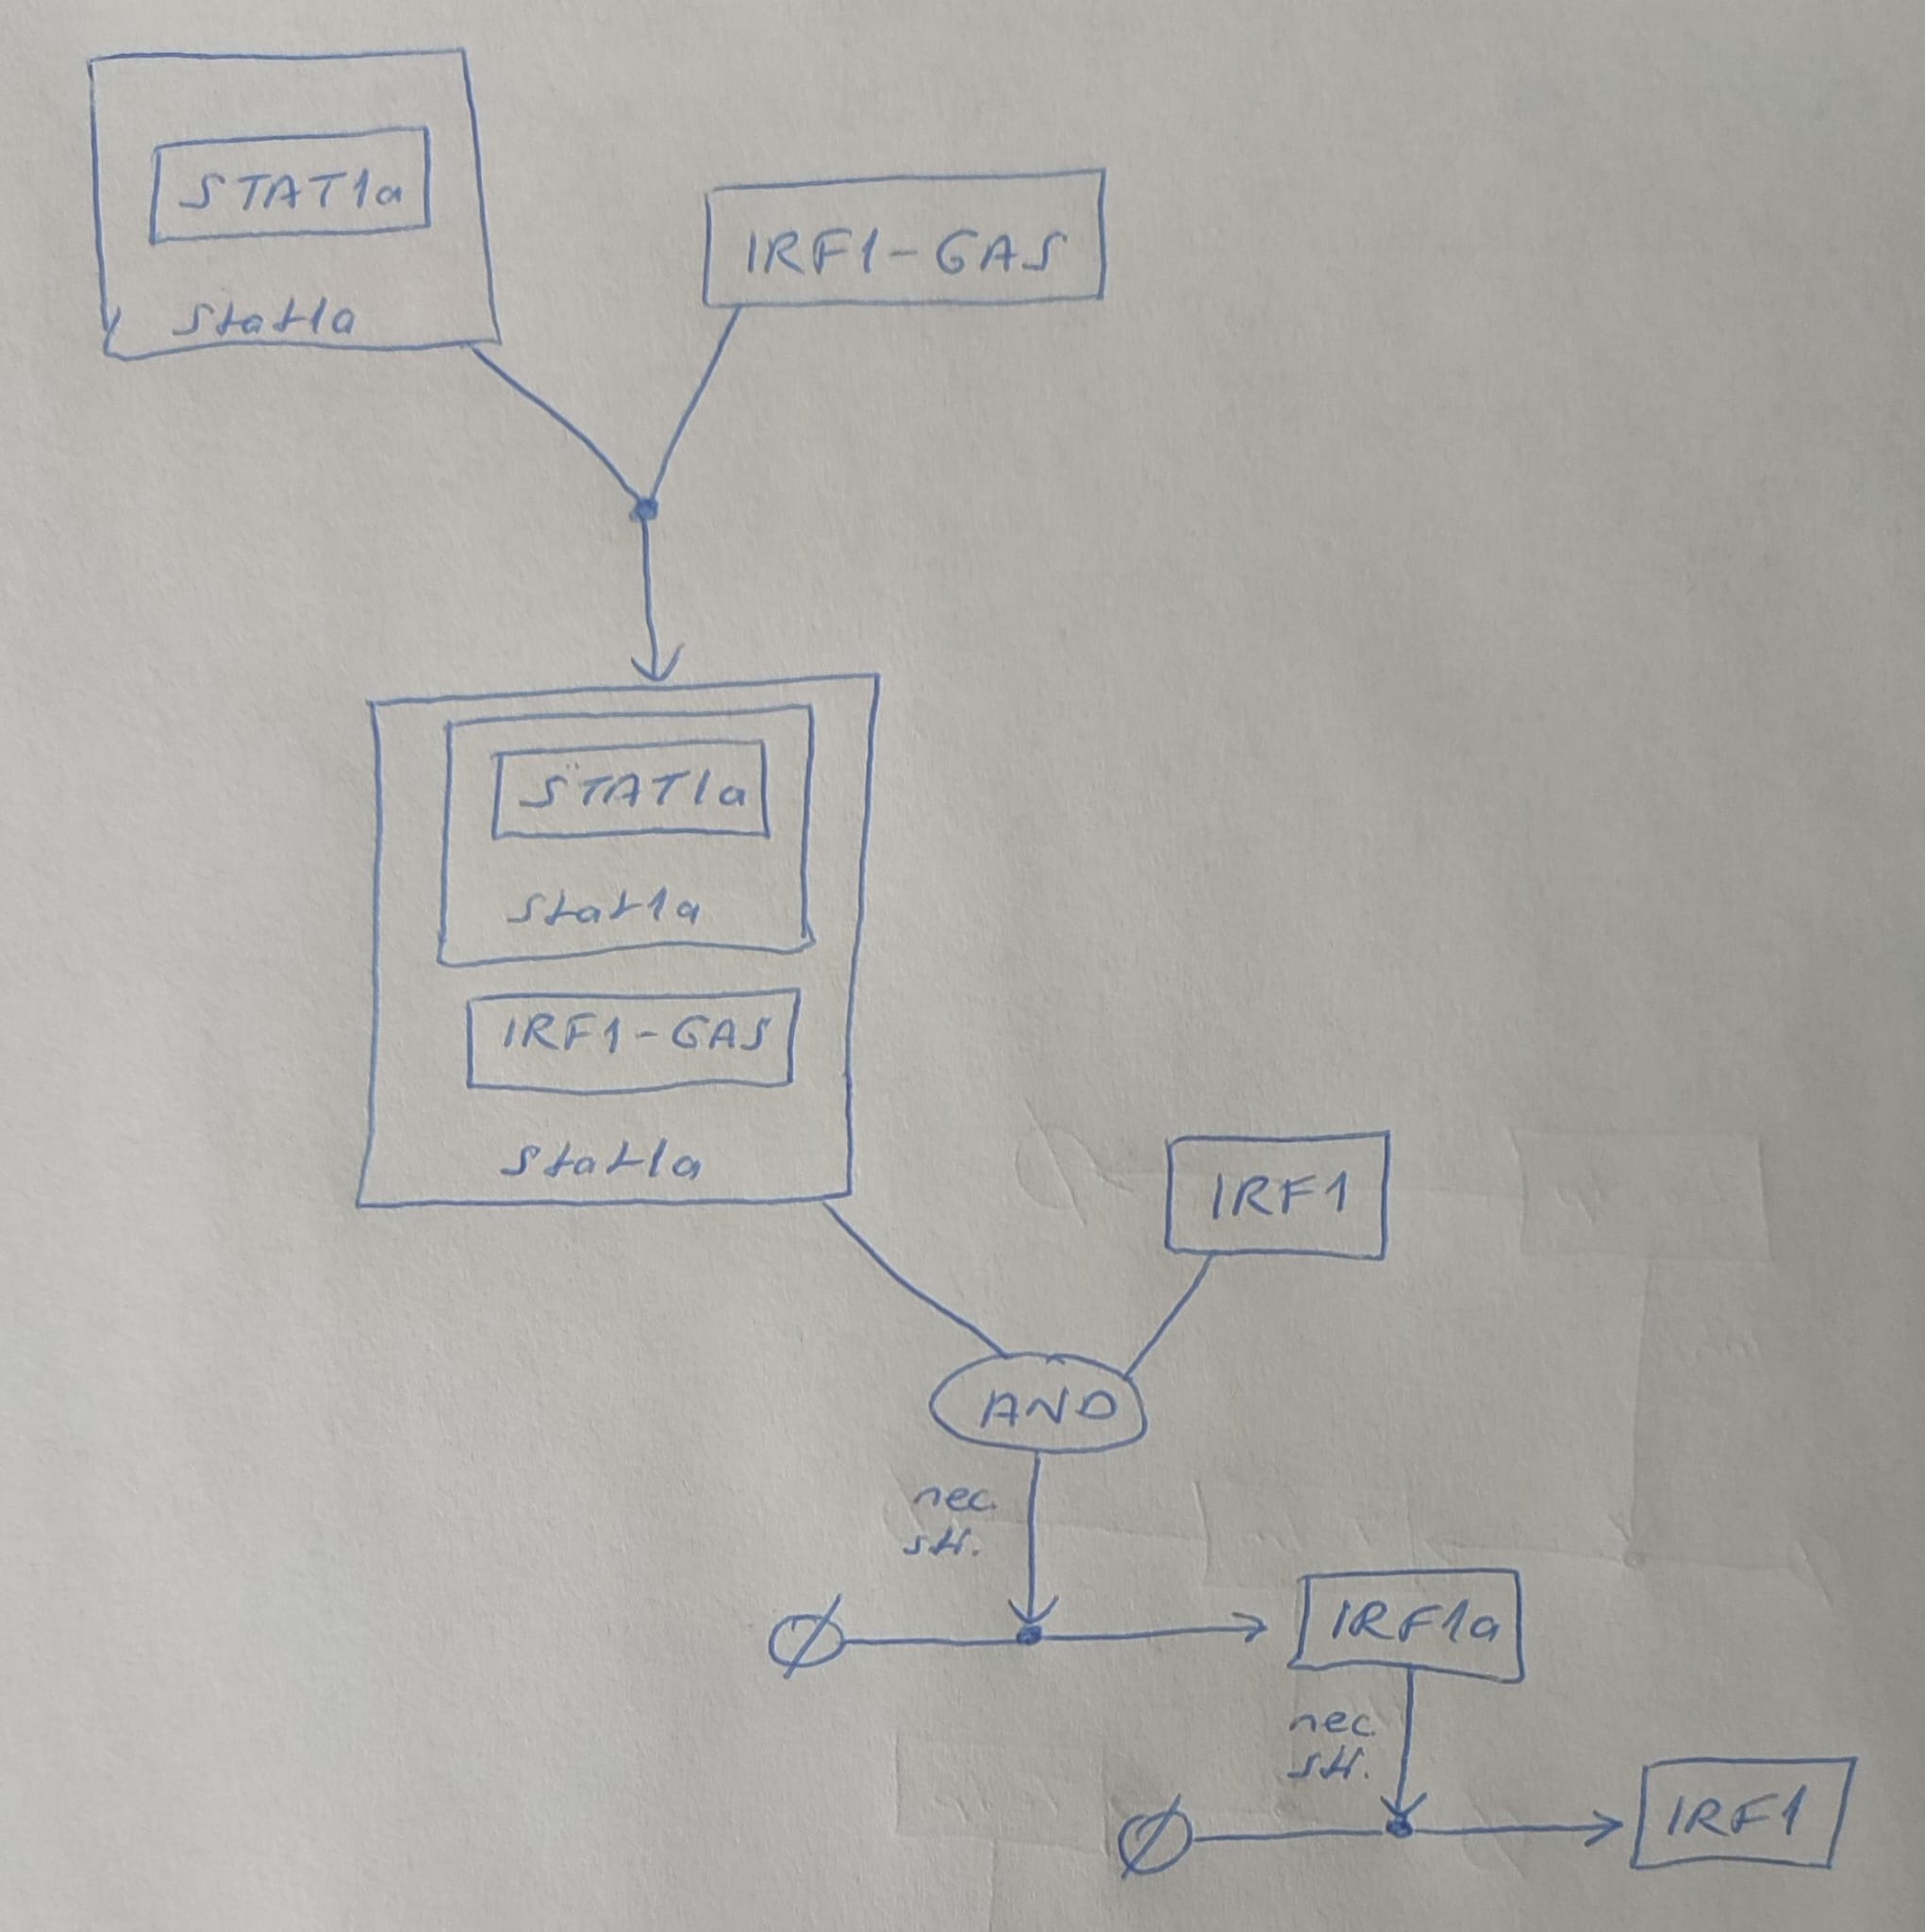 STAT1a
stat1a
IRF1-GAS
STAT1a
stat1a
IRF1-GAS
stat1a
IRF1
AND
nec.
sti.
Ø
IRF1a
nec.
sti.
Ø
IRF1